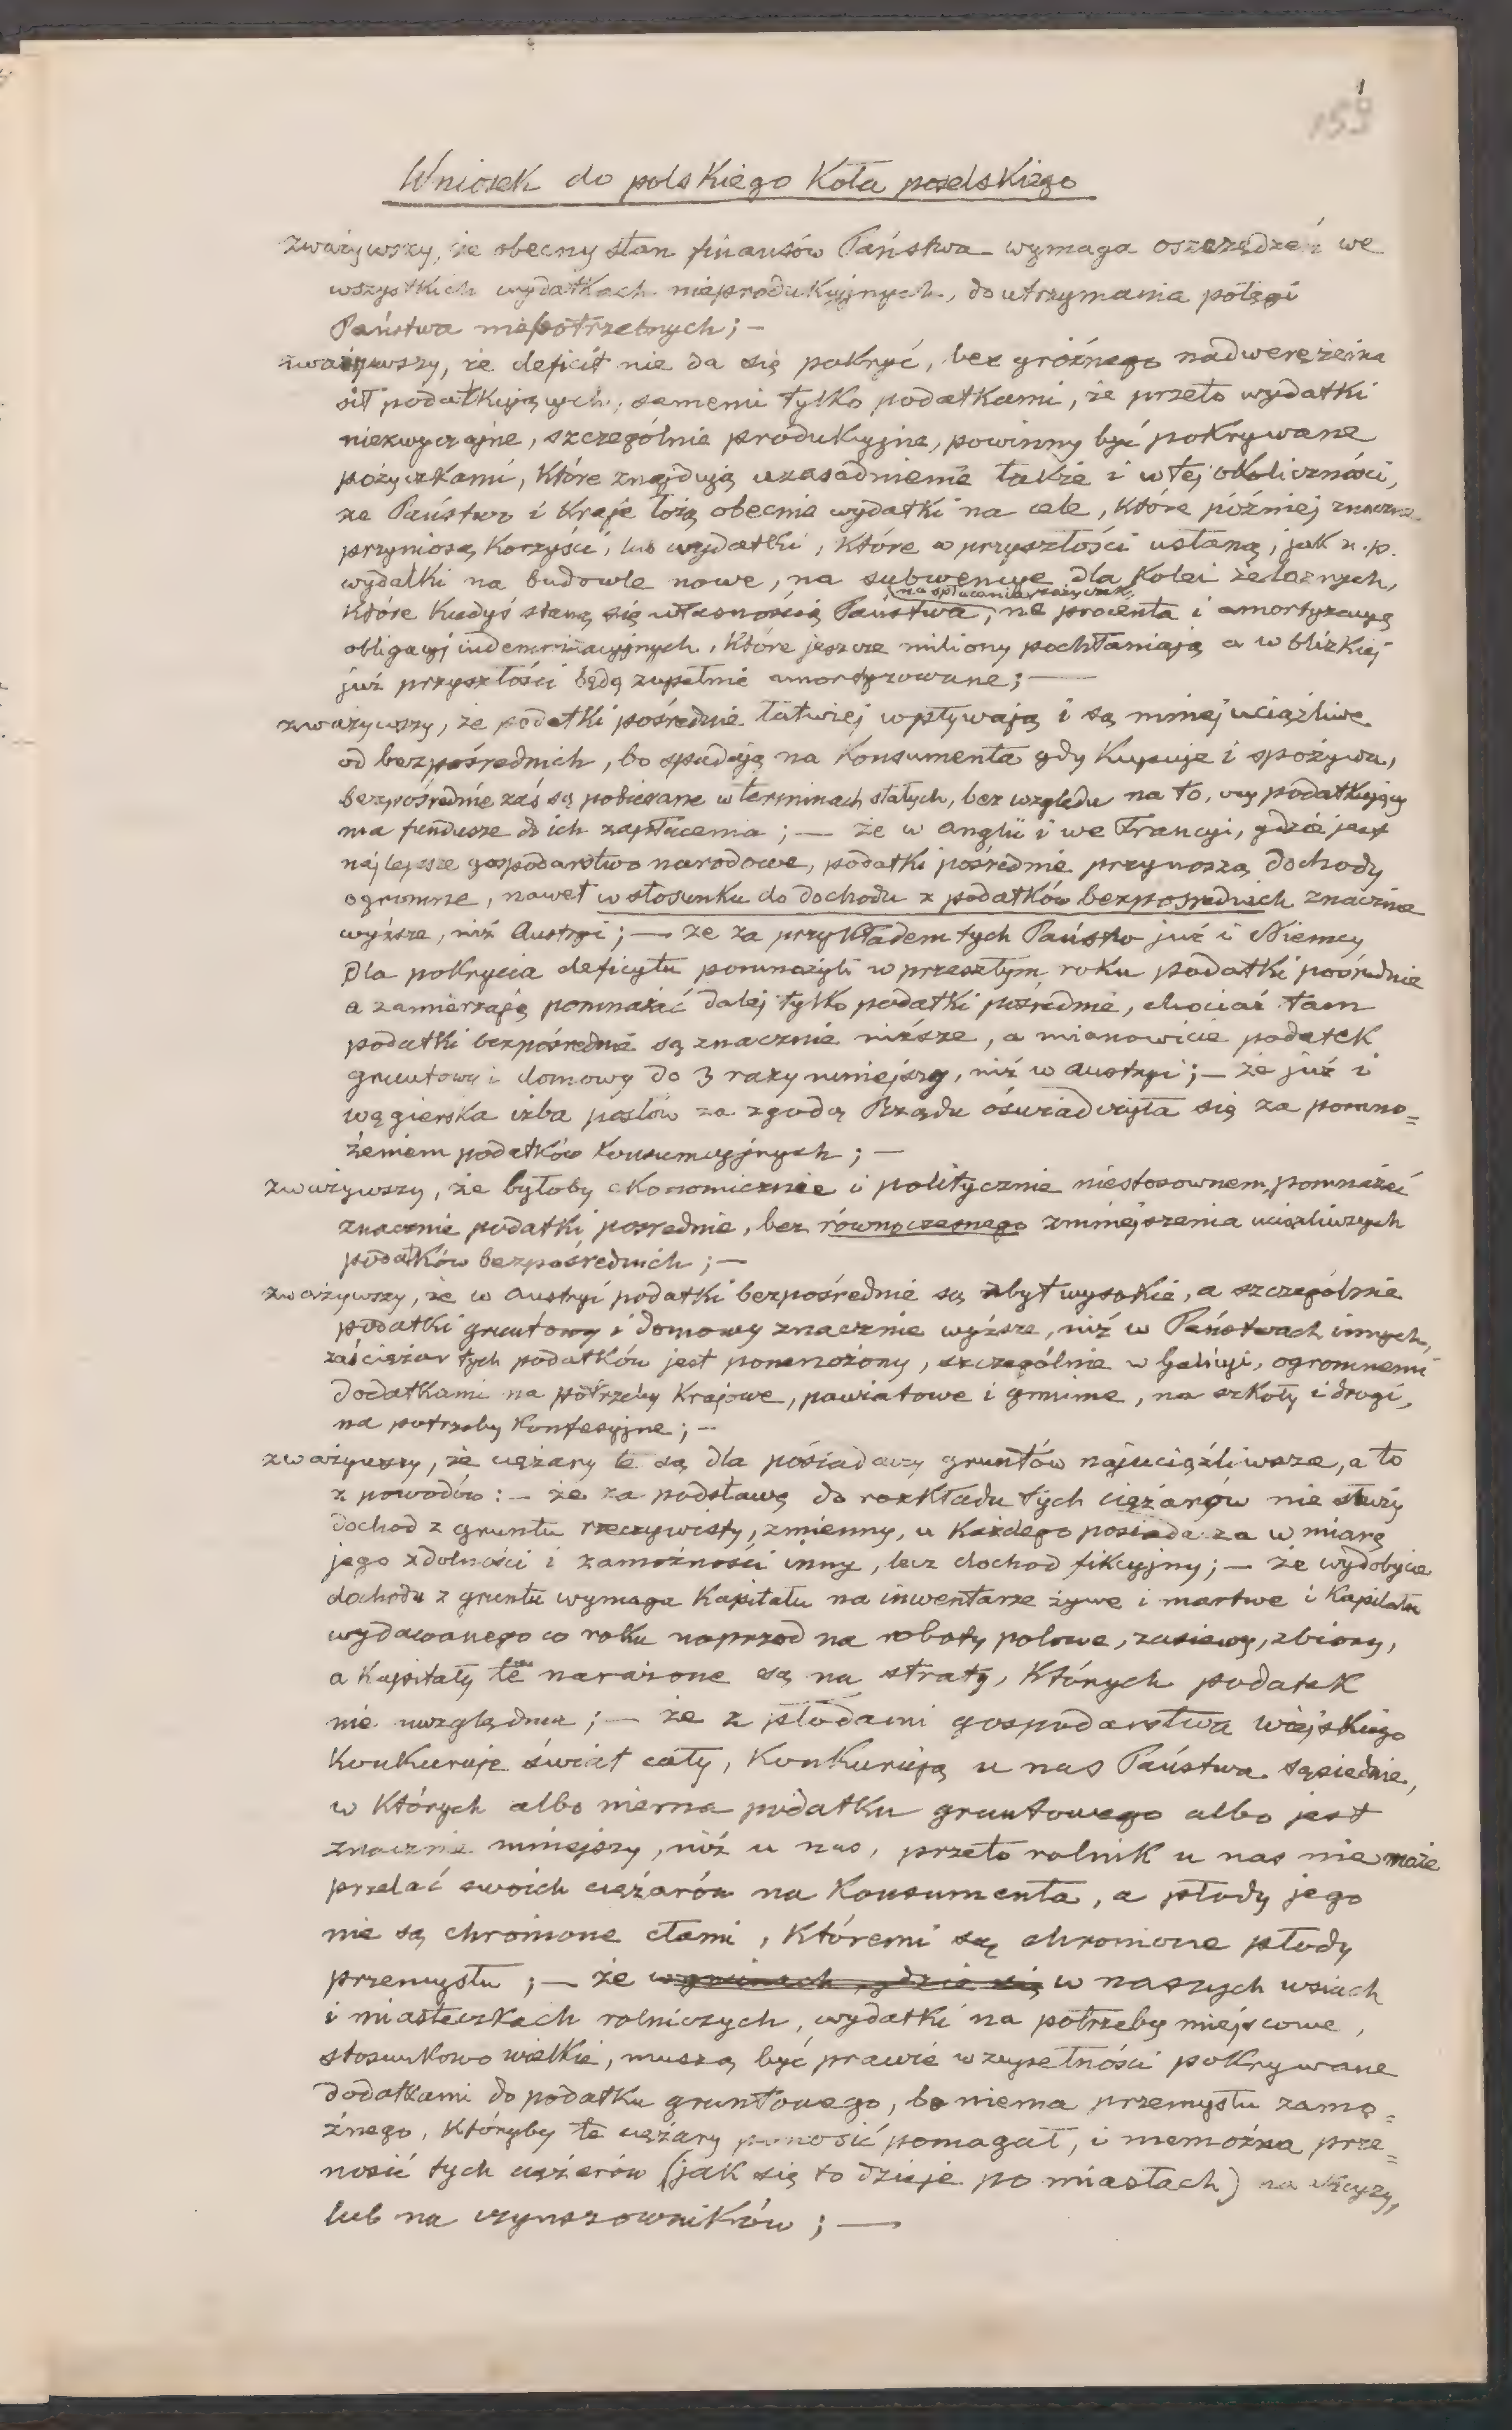 159
Wniosek do polskiego Koła poselskiego
zważywszy, że obecny stan finansów Państwa wymaga oszczędzeń we
wszystkich wydatkach nieprodukcyjnych, do utrzymania potęgi
Państwa niepotrzebnych; –
zważywszy, że deficit nie da się pokryć, bez groźnego nadwerężenia
sił podatkujących, samemi tylko podatkami, że przeto wydatki
niezwyczajne, szczególnie produkcyjne, powinny być pokrywane
pożyczkami, które znajdują uzasadnienie także i w tej okoliczności,
że Państwo i Kraje łożą obecnie wydatki na cele, które później znaczne
przyniosą korzyści, lub wydatki, które w przyszłości ustaną, jak n.p.
wydatki na budowle nowe, na subwencye dla Kolei żelaznych,
na spłacenia pożyczek,
które kiedyś staną się własnością Państwa, na procenta i amortyzacyę
obligacyj indemnizacyjnych, które jeszcze miliony pochłaniają a w blizkiej
już przyszłości będą zupełnie amortyzowane; —
zważywszy, że podatki pośrednie łatwiej wpływają i są mniej uciążliwe
od bezpośrednich, bo spadają na Konsumenta gdy Kupuje i spożywa,
bezpośrednie zaś są pobierane w terminach stałych, bez względu na to, czy podatkujący
ma fundusze do ich zapłacenia; — że w Anglii i we Francyi, gdzie jest
najlepsze gospodarstwo narodowe, podatki pośrednie przynoszą dochody
ogromne, nawet w stosunku do dochodu z podatków bezpośrednich znacznie
wyższe, niż Austryi; — że za przykładem tych Państw już i Niemcy
dla pokrycia deficytu pomnożyli w przeszłym roku podatki pośrednie
a zamierzają pomnażać dalej tylko podatki pośrednie, chociaż tam
podatki bezpośrednie są znacznie niższe, a mianowicie podatek
gruntowy i domowy do 3 razy mniejszy, niż w Austryi; – że już i
węgierska izba posłów za zgodą Rządu oświadczyła się za pomno=
żeniem podatków konsumcyjnych; –
zważywszy, że byłoby ekonomicznie i politycznie niestosownem, pomnażać
znacznie podatki pośrednie, bez równoczesnego zmniejszenia uciążliwszych
podatków bezpośrednich; –
zważywszy, że w Austryi podatki bezpośrednie są zbyt wysokie, a szczególnie
podatki gruntowy i domowy znacznie wyższe, niż w Państwach innych,
zaś ciężar tych podatków jest pomnożony, szczególnie w Galicyi, ogromnemi
dodatkami na potrzeby Krajowe, powiatowe i gminne, na szkoły i drogi,
na potrzeby Konfesyjne; –
zważywszy, że ciężary te są dla posiadaczy gruntów najuciążliwsze, a to
z powodów: – że za podstawę do rozkładu tych ciężarów nie służy
dochod z gruntu rzeczywisty, zmienny, u każdego posiadacza w miarę
jego zdolności i zamożności inny, lecz dochod fikcyjny; – że wydobycie
dochodu z gruntu wymaga Kapitału na inwentarze żywe i martwe i Kapitału
wydawanego co roku naprzod na roboty polowe, zasiewy, zbiory,
a Kapitały te narażone są na straty, których podatek
nie uwzględnia; — że z płodami gospodarstwa wiejskiego
Konkuruje świat cały, Konkurują u nas Państwa sąsiednie,
w których albo niema podatku gruntowego albo jest
znacznie mniejszy, niż u nas, przeto rolnik u nas nie może
przelać swoich ciężarów na Konsumenta, a płody jego
nie są chronione cłami, któremi są chronione płody
przemysłu; — że w gminach, gdzie się w naszych wsiach
i miasteczkach rolniczych, wydatki na potrzeby miejscowe,
stosunkowo wielkie, muszą być prawie w zupełności pokrywane
dodatkami do podatku gruntowego, bo niema przemysłu zamo=
żnego, któryby te ciężary ponosić pomagał, i niemożna prze=
nosić tych ciężarów (jak się to dzieje po miastach) na
lub na czynszowników; —